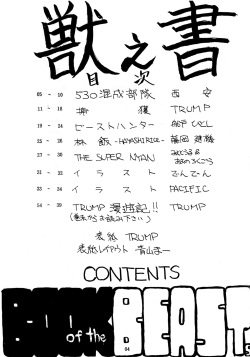 獣之書
目次
05 - 10 530混成部隊 西 安
11 - 18 捕獲 TRUMP
19 - 24 ビーストハンター 船戸ひとし
25 - 26 林飯-HAYASHIRICE- 藤岡建機
27 - 30 THE SUPER NYAN みどうる&
31 - 32 イラスト でんでん
33 - 34 イラスト PACIFIC
54 - 39 TRUMP 漫遊記!! TRUMP
(巻末からお読み下さい)
表紙 TRUMP
表紙レイアウト 青山まー
CONTENTS
BOOK of the BEAST
04